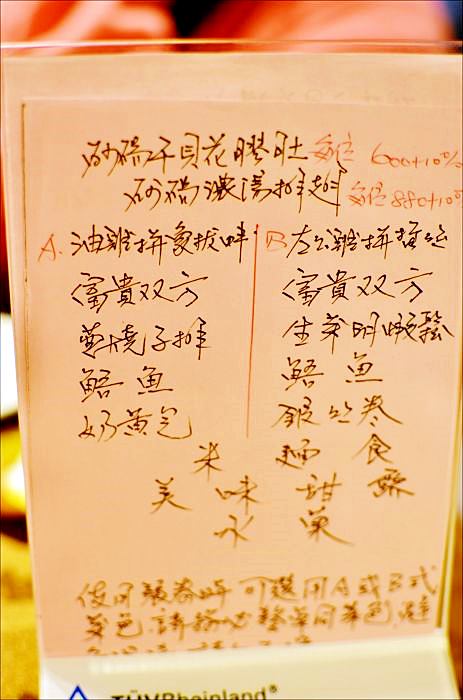 砂鍋干貝花膠肚 每位 600+10%
砂鍋濃湯排翅 每位 880+10%
A. 油雞拼象拔蚌
富貴双方
蔥燒子排
鮨魚
奶黃包
B 左公雞拼
富貴双方
生菜明蝦鬆
鮨魚
銀丝卷
米 麵 食
美 味 甜 點
水 菓
使用餐券時 可選用A或B式
菜色,請務必整桌同菜色
TÜVRheinland®